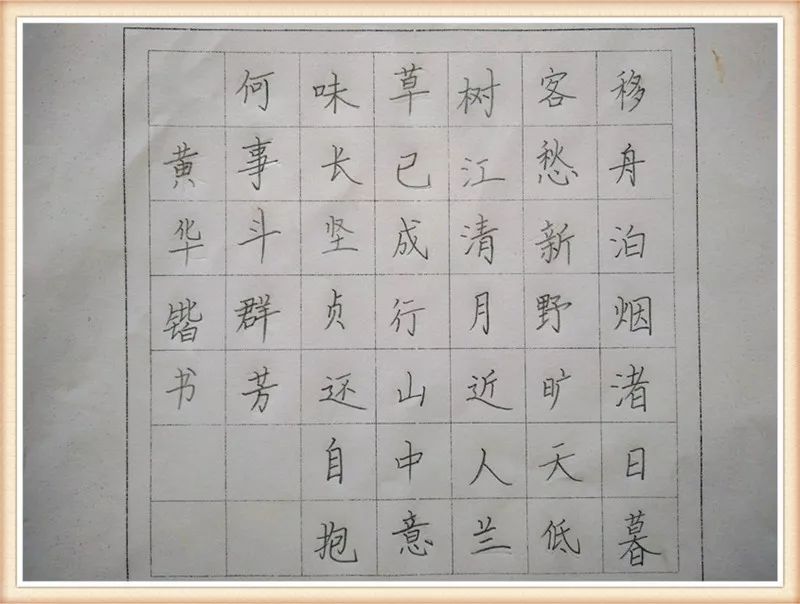 移舟泊烟渚日暮
客愁新野旷天低
树江清月近人兰
草已成行山中意
味长坚贞还自抱
何事斗群芳
黄华锴书